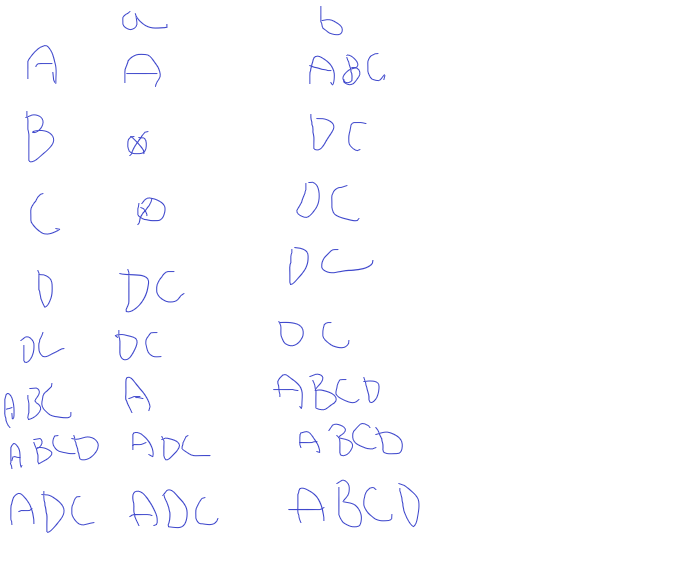 a b
A A ABC
B ∅ DC
C ∅ DC
D DC DC
DC DC DC
ABC A ABCD
ABCD ADC ABCD
ADC ADC ABCD